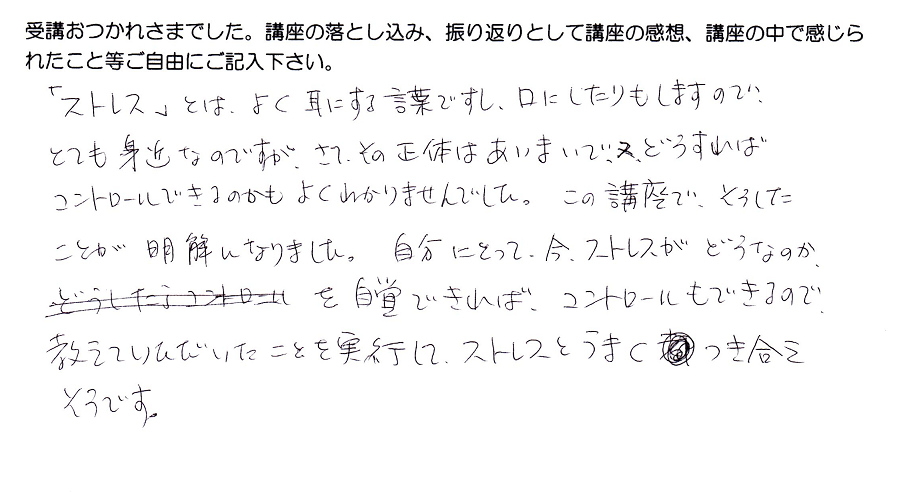 受講おつかれさまでした。講座の落とし込み、振り返りとして講座の感想、講座の中で感じら
れたこと等ご自由にご記入下さい。
「ストレス」とは、よく耳にする言葉ですし、口にしたりもしますので、
とても身近なのですが、さて、その正体はあいまいで、又、どうすれば
コントロールできるのかもよくわかりませんでした。この講座で、そうした
ことが明解になりました。自分にとって、今、ストレスがどうなのか、
を自覚できれば、コントロールもできるので、
教えていただいたことを実行して、ストレスとうまくつき合え
そうです。